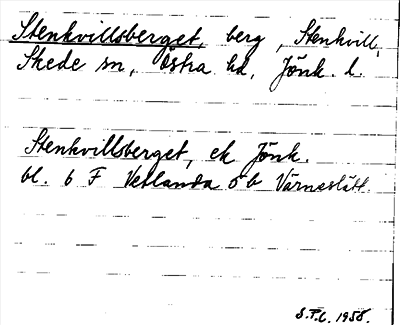 Stenkvillsberget, berg, Stenkvill,
Skede sn, Östra hd, Jönk. l.
Stenkvillsberget, ek Jönk.
bl. 6 F Vetlanda öb Värneslätt.
S.F.L. 1958.